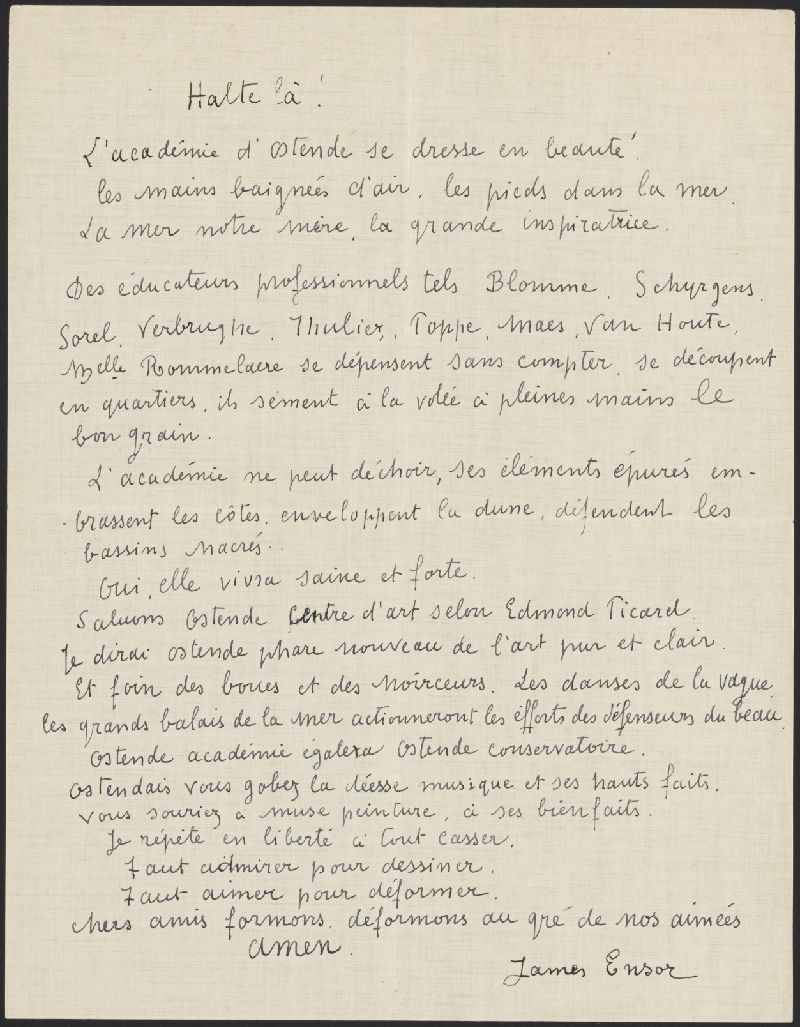 Halte là !
L'académie d'Ostende se dresse en beauté.
les mains baignées d'air, les pieds dans la mer.
La mer notre mère, la grande inspiratrice.
Des éducateurs professionnels tels Blomme, Schyrgens,
Sorel, Verbrughe, Thuliez, Toppe, Maes, Van Houte,
Melle Rommelaere se dépensent sans compter, se découpent
en quartiers, ils sèment à la volée à pleines mains le
bon grain.
L'académie ne peut déchoir, ses éléments épurés em-
brassent les côtes, enveloppent la dune, défendent les
bassins nacrés.
Oui, elle vivra saine et forte.
Saluons Ostende Centre d'art selon Edmond Picard.
Je dirai Ostende phare nouveau de l'art pur et clair.
Et foin des boues et des noirceurs. Les danses de la vague,
les grands balais de la mer actionneront les efforts des défenseurs du beau.
Ostende académie égalera Ostende conservatoire.
Ostendais vous gobez la déesse musique et ses hauts faits.
Vous souriez à muse peinture, à ses bienfaits.
Je répète en liberté à tout casser.
Faut admirer pour dessiner.
Faut aimer pour déformer.
Chers amis formons, déformons au gré de nos aimées
Amen.
James Ensor